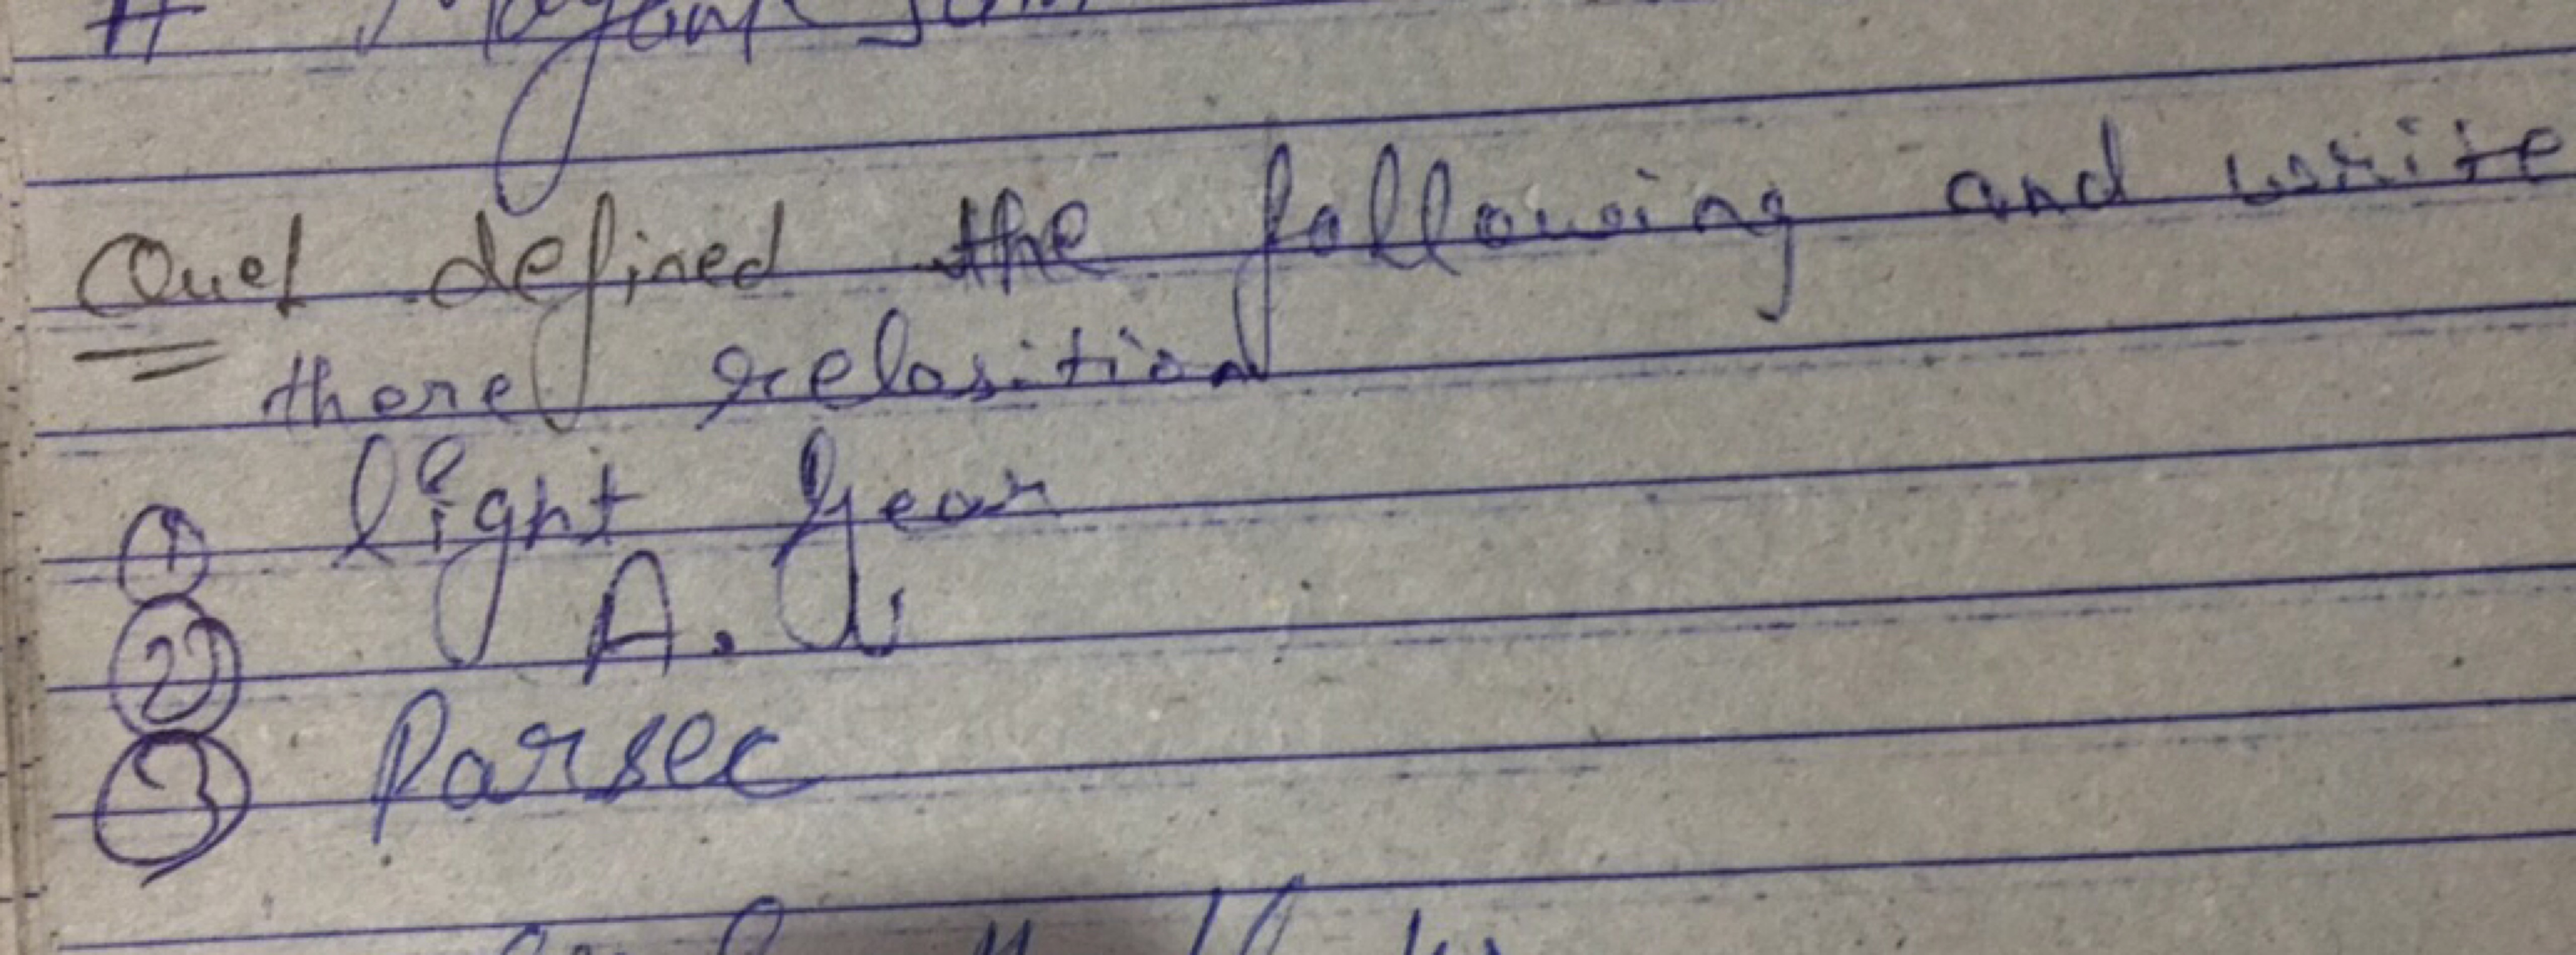 Que1 defined the following and write
there relasition
① light year
② A.U.
③ Parsec